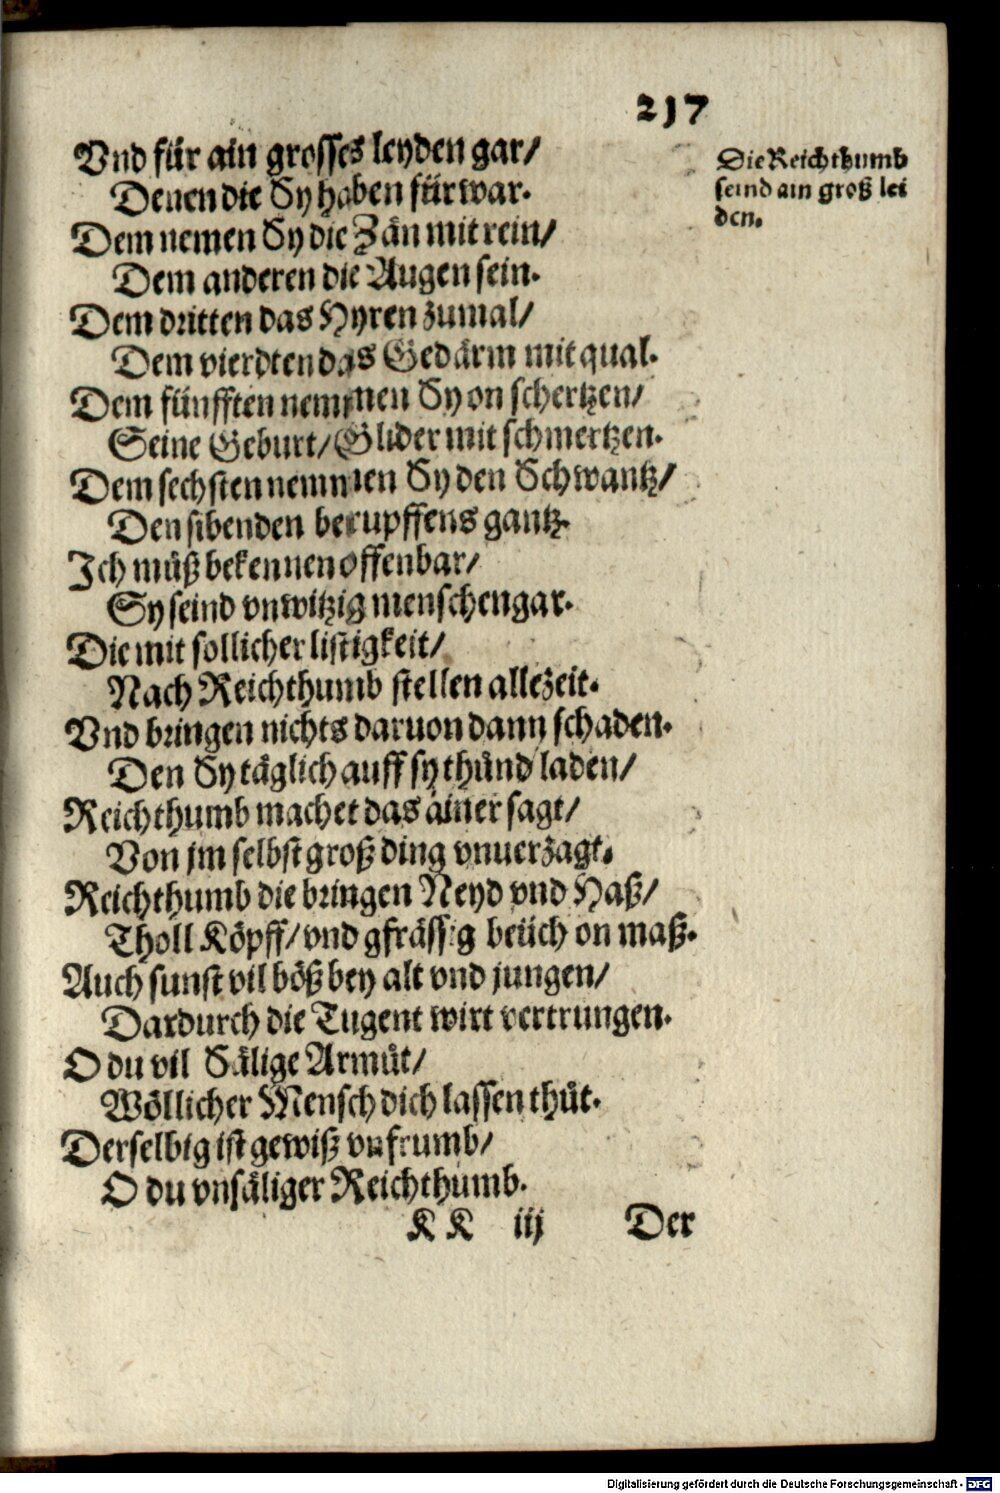 217
Vnd für ain grosses leyden gar/
Denen die Sy haben fürwar.
Dem nemen Sy die Zän mit rein/
Dem anderen die Augen sein.
Dem dritten das Hyren zumal/
Dem vierdten das Gedärm mit qual.
Dem fünfften nemmen Sy on schertzen/
Seine Geburt/Glider mit schmertzen.
Dem sechsten nemmen Sy den Schwantz/
Den sibenden berupffens gantz.
Ich müß bekennen offenbar/
Sy seind vnwitzig menschen gar.
Die mit sollicher listigkeit/
Nach Reichthumb stellen allezeit.
Vnd bringen nichts daruon dann schaden.
Den Sy täglich auff sy thünd laden/
Reichthumb machet das ainer sagt/
Von jm selbst groß ding vnuerzagt.
Reichthumb die bringen Neyd vnd Haß/
Tholl Köpff/vnd gfrässig beüch on maß.
Auch sunst vil böß bey alt vnd jungen/
Dardurch die Tugent wirt vertrungen.
O du vil Sälige Armüt/
Wöllicher Mensch dich lassen thüt.
Derselbig ist gewiß vnfrumb/
O du vnsäliger Reichthumb.
KK iij Der
Die Reichthumb
seind ain groß lei
den.
Digitalisierung gefördert durch die Deutsche Forschungsgemeinschaft - DFG